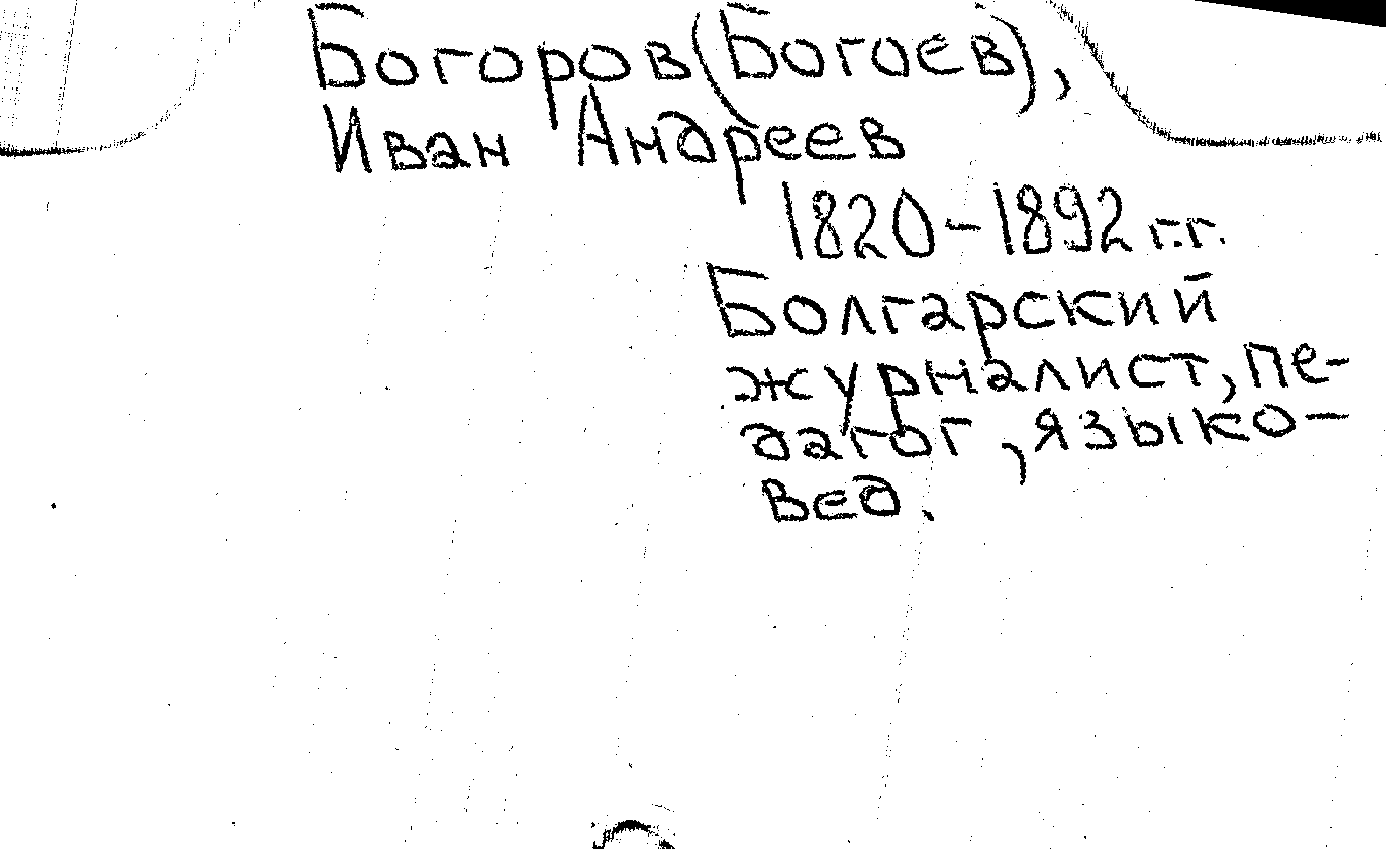 Богоров (Богоев),
Иван Андреев
1820-1892 г.г.
Болгарский
журналист, пе-
дагог, языко-
вед.